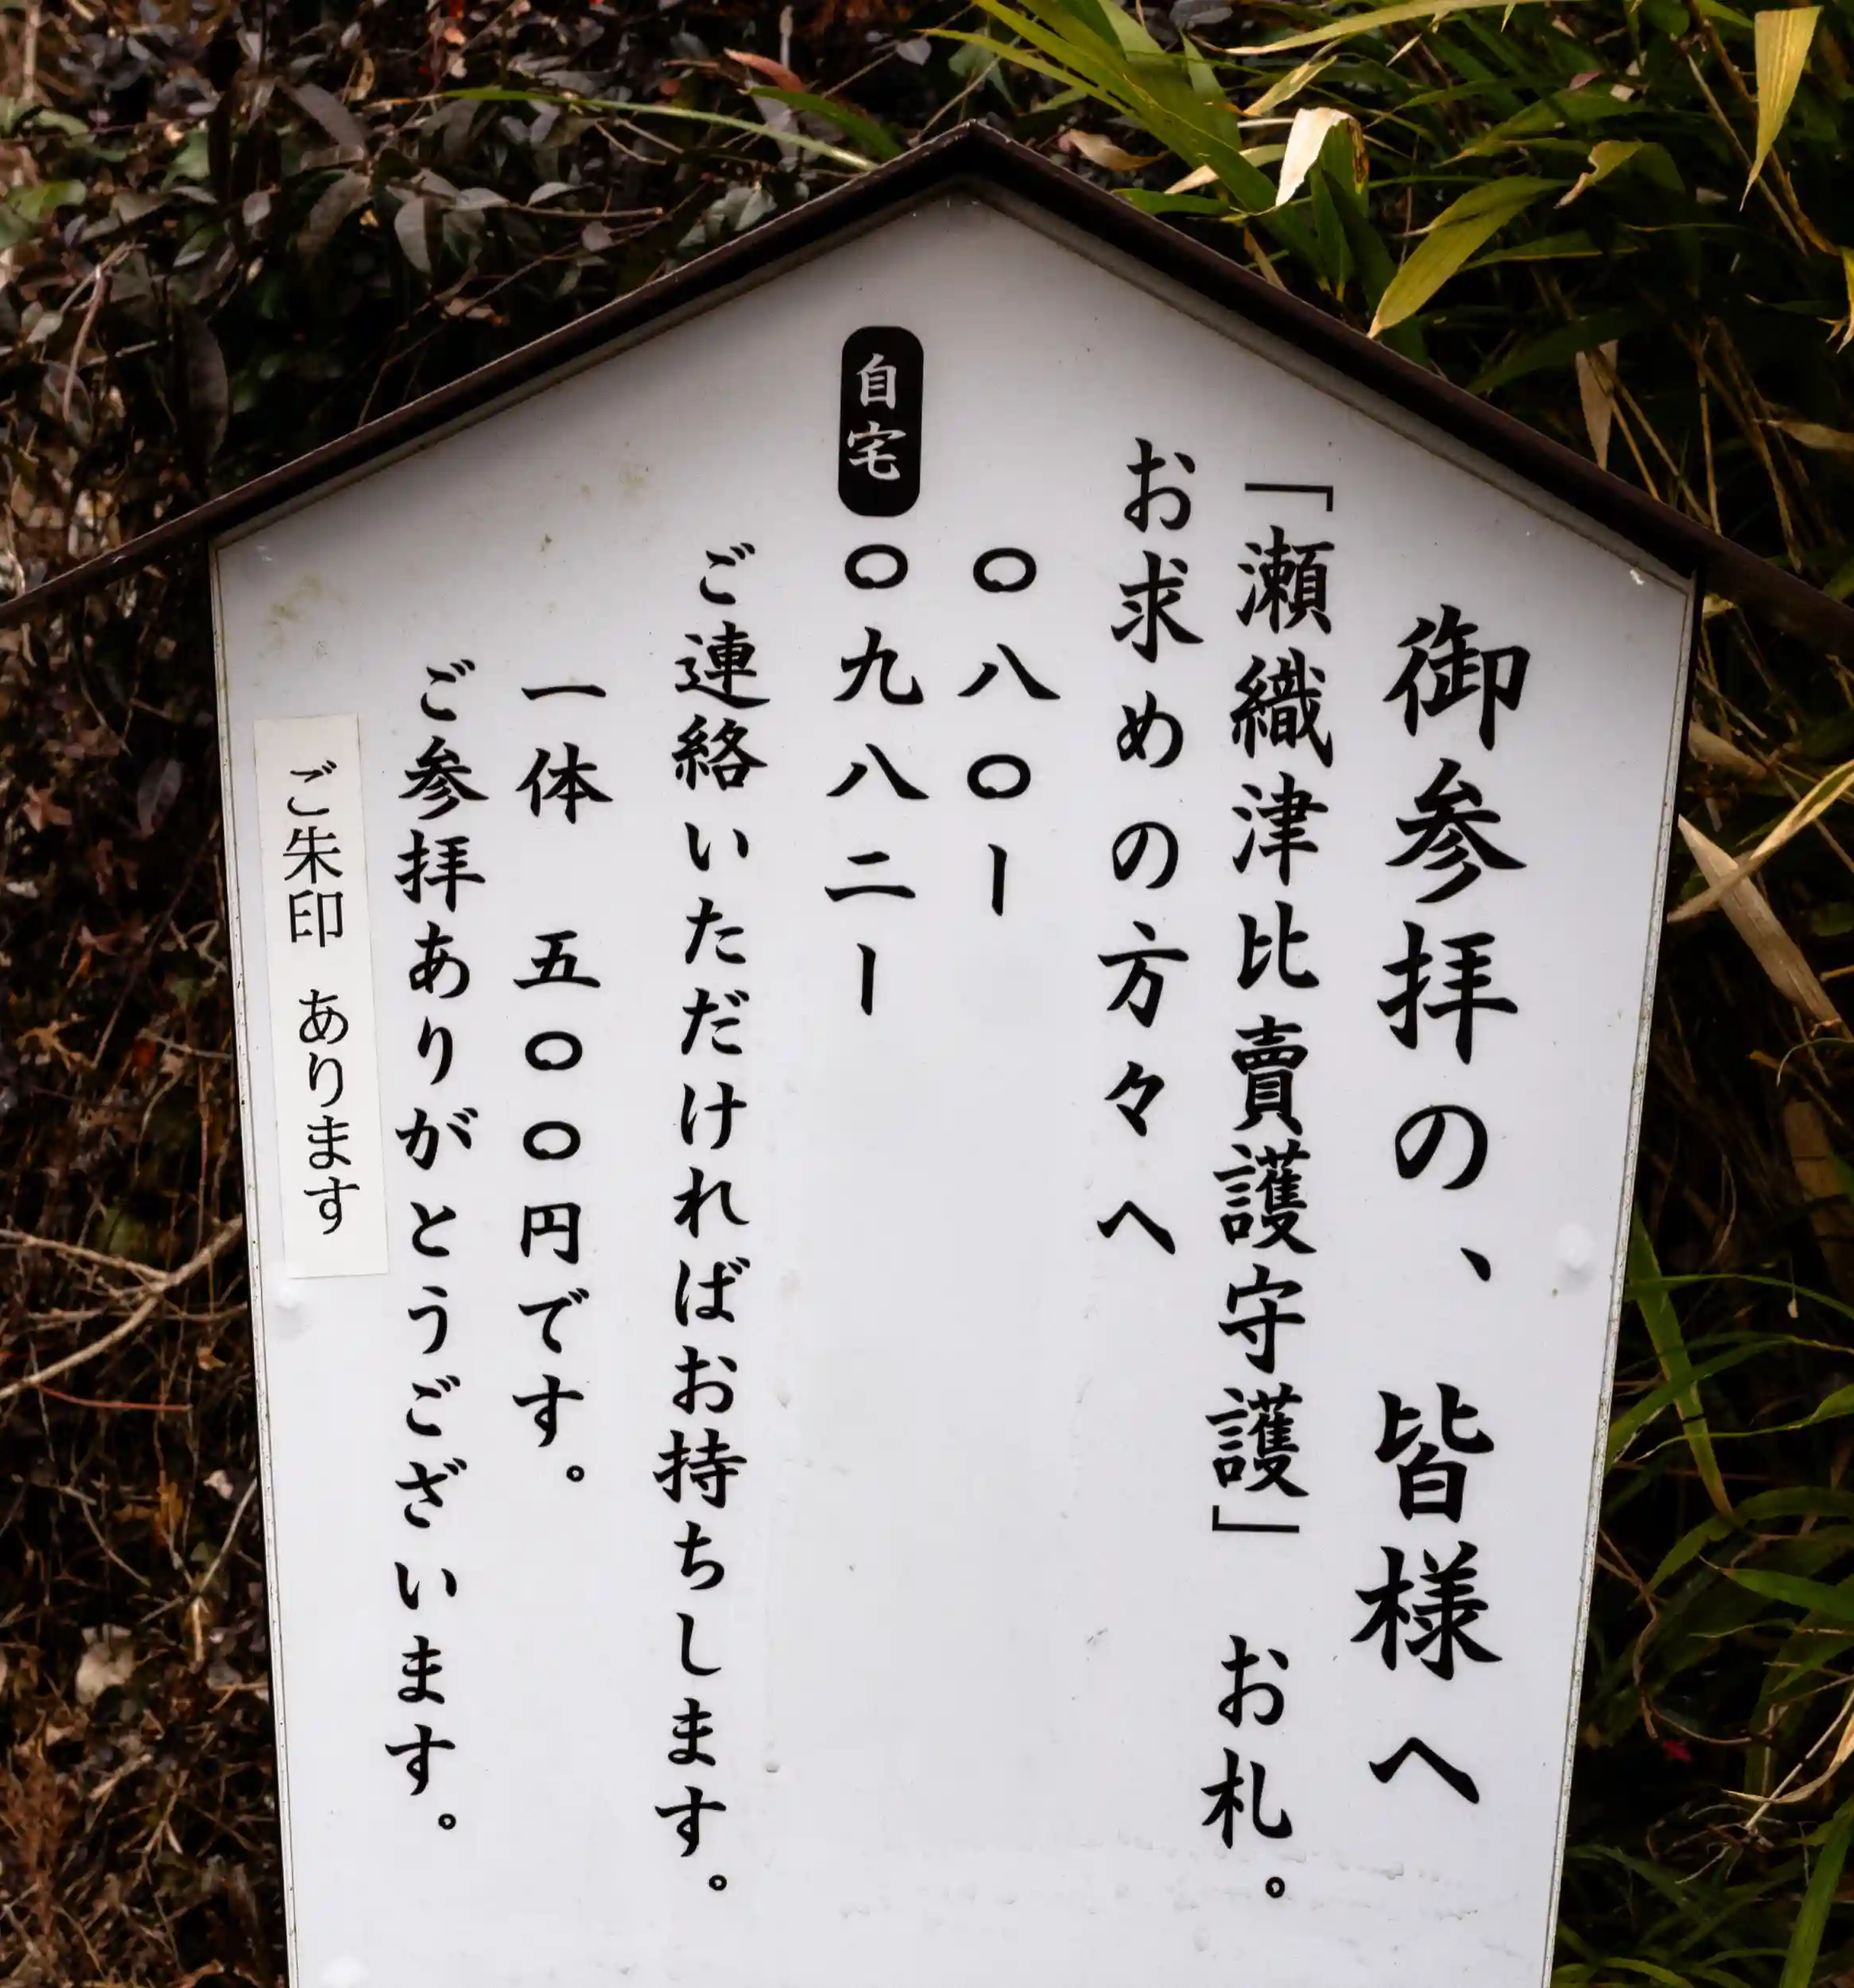 御参拝の、皆様へ
「瀬織津比賣護守護」 お札。
お求めの方々へ
〇八〇ー
自宅 〇九八二ー
ご連絡いただければお持ちします。
一体 五〇〇円です。
ご参拝ありがとうございます。
ご朱印 あります